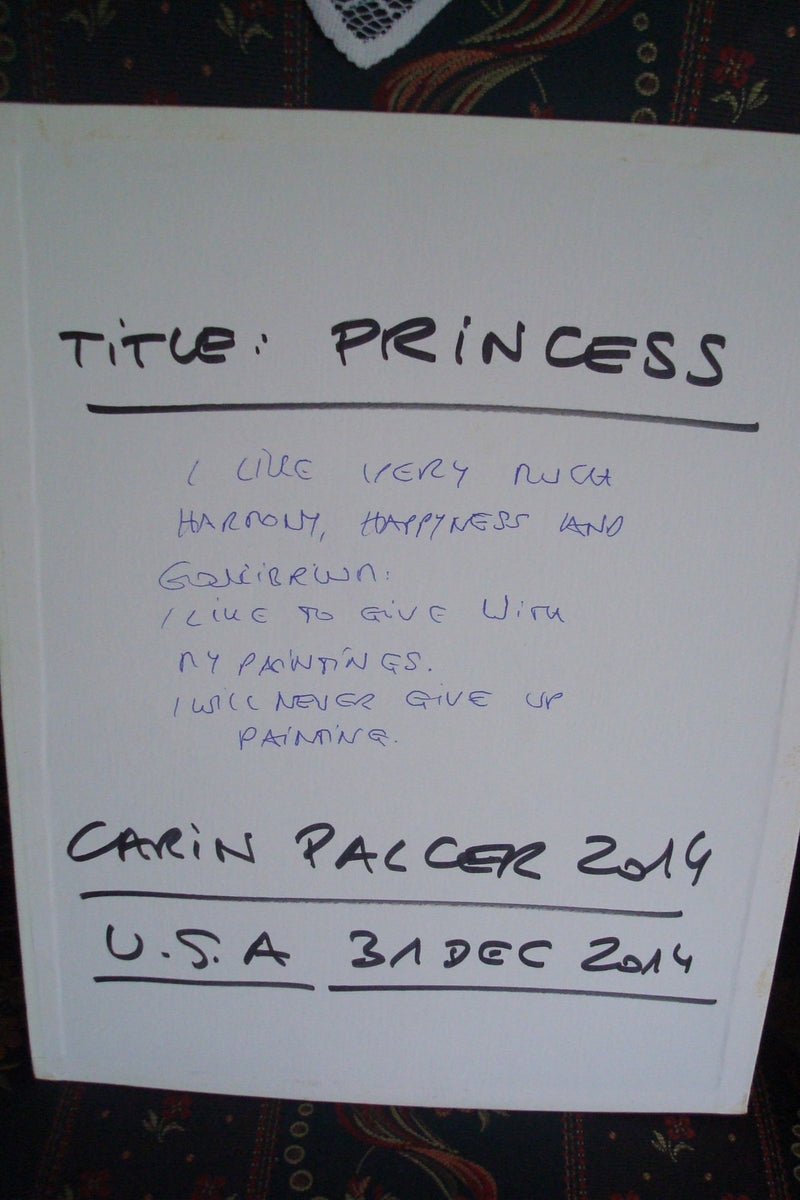 TiTLE: PRiNCESS
I LIKE VERY MUCH
HARMONY, HAPPYNESS AND
EQUILIBRIUM:
I LIKE TO GIVE WITH
MY PAINTINGS.
I WILL NEVER GIVE UP
PAINTING.
CARiN PALCER 2014
U.S.A 31 DEC 2014